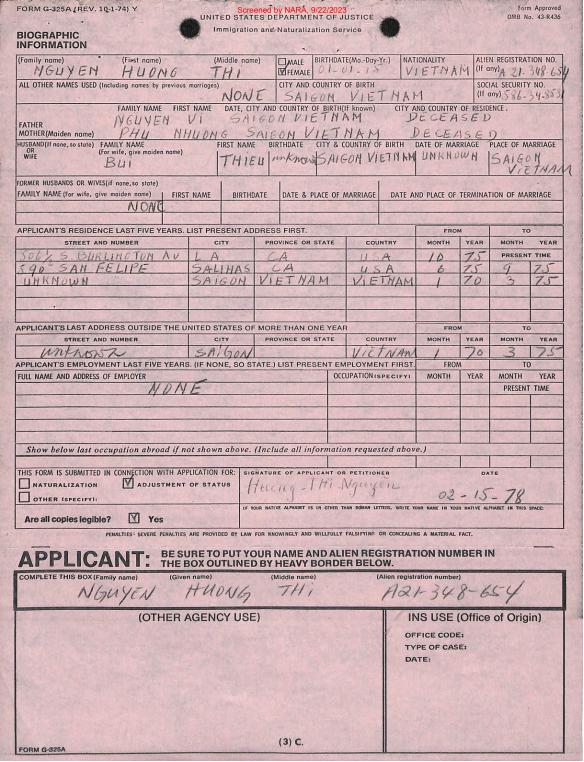 FORM G-325A (REV. 10-1-74) Y
Screened by NARA, 9/22/2023
UNITED STATES DEPARTMENT OF JUSTICE
Immigration and Naturalization Service
Form Approved
OMB No. 43-R436
BIOGRAPHIC
INFORMATION
(Family name) (First name) (Middle name) MALE FEMALE BIRTHDATE(Mo.-Day-Yr.) NATIONALITY ALIEN REGISTRATION NO. (If any)
NGUYEN HUONG THI 01-01-15 VIETNAM A 21-348-654
ALL OTHER NAMES USED (Including names by previous marriages) CITY AND COUNTRY OF BIRTH SOCIAL SECURITY NO. (If any)
NONE SAIGON VIETNAM
FAMILY NAME FIRST NAME DATE, CITY AND COUNTRY OF BIRTH(If known) CITY AND COUNTRY OF RESIDENCE.
FATHER NGUYEN VI SAIGON VIETNAM DECEASED
MOTHER(Maiden name) PHU NHUONG SAIGON VIETNAM DECEASED
HUSBAND(If none, so state) OR WIFE FAMILY NAME (For wife, give maiden name) FIRST NAME BIRTHDATE CITY & COUNTRY OF BIRTH DATE OF MARRIAGE PLACE OF MARRIAGE
BUI THIEU unknown SAIGON VIETNAM UNKNOWN SAIGON VIETNAM
FORMER HUSBANDS OR WIVES(if none, so state)
FAMILY NAME (For wife, give maiden name) FIRST NAME BIRTHDATE DATE & PLACE OF MARRIAGE DATE AND PLACE OF TERMINATION OF MARRIAGE
NONE
APPLICANT'S RESIDENCE LAST FIVE YEARS. LIST PRESENT ADDRESS FIRST. FROM TO
STREET AND NUMBER CITY PROVINCE OR STATE COUNTRY MONTH YEAR MONTH YEAR
S. BURLINGTON AV LA CA USA 10 75 PRESENT TIME
SAN FELIPE SALINAS CA USA 6 75 9 75
UNKNOWN SAIGON VIETNAM VIETNAM 1 70 3 75
APPLICANT'S LAST ADDRESS OUTSIDE THE UNITED STATES OF MORE THAN ONE YEAR FROM TO
STREET AND NUMBER CITY PROVINCE OR STATE COUNTRY MONTH YEAR MONTH YEAR
unknown SAIGON VIETNAM 1 70 3 75
APPLICANT'S EMPLOYMENT LAST FIVE YEARS. (IF NONE, SO STATE.) LIST PRESENT EMPLOYMENT FIRST. FROM TO
FULL NAME AND ADDRESS OF EMPLOYER OCCUPATION(SPECIFY) MONTH YEAR MONTH YEAR
NONE PRESENT TIME
Show below last occupation abroad if not shown above. (Include all information requested above.)
THIS FORM IS SUBMITTED IN CONNECTION WITH APPLICATION FOR: SIGNATURE OF APPLICANT OR PETITIONER DATE
NATURALIZATION ADJUSTMENT OF STATUS
OTHER (SPECIFY):
Huong-Thi-Nguyen 02-15-78
IF YOUR NATIVE ALPHABET IS IN OTHER THAN ROMAN LETTERS, WRITE YOUR NAME IN YOUR NATIVE ALPHABET IN THIS SPACE:
Are all copies legible? Yes
PENALTIES: SEVERE PENALTIES ARE PROVIDED BY LAW FOR KNOWINGLY AND WILLFULLY FALSIFYING OR CONCEALING A MATERIAL FACT.
APPLICANT: BE SURE TO PUT YOUR NAME AND ALIEN REGISTRATION NUMBER IN
THE BOX OUTLINED BY HEAVY BORDER BELOW.
COMPLETE THIS BOX(Family name) (Given name) (Middle name) (Alien registration number)
NGUYEN HUONG THI A21-348-654
(OTHER AGENCY USE) INS USE (Office of Origin)
OFFICE CODE:
TYPE OF CASE:
DATE:
(3) C.
FORM G-325A